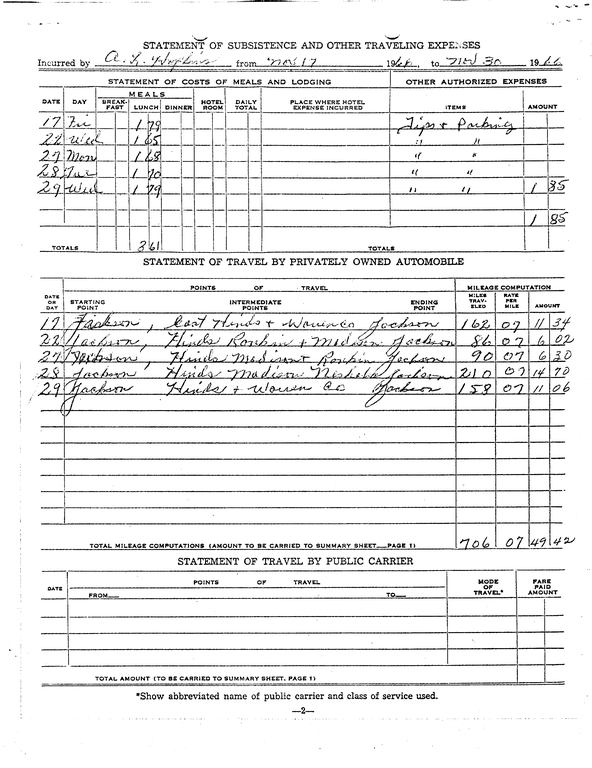 STATEMENT OF SUBSISTENCE AND OTHER TRAVELING EXPENSES
Incurred by A. L. Hopkins from Nov 17 1966, to Nov 30 1966
STATEMENT OF COSTS OF MEALS AND LODGING OTHER AUTHORIZED EXPENSES
DATE DAY MEALS BREAK-FAST LUNCH DINNER HOTEL ROOM DAILY TOTAL PLACE WHERE HOTEL EXPENSE INCURRED ITEMS AMOUNT
17 Fri 1 79 Tips & Parking
22 Wed 1 65 " "
27 Mon 1 68 " "
28 Tue 1 70 " "
29 Wed 1 79 " " 1 85
1 85
TOTALS 8 61 TOTALS
STATEMENT OF TRAVEL BY PRIVATELY OWNED AUTOMOBILE
POINTS OF TRAVEL MILEAGE COMPUTATION
DATE OR DAY STARTING POINT INTERMEDIATE POINTS ENDING POINT MILES TRAV-ELED RATE PER MILE AMOUNT
17 Jackson, East Hinds & Warren Co Jackson 162 07 11 34
22 Jackson, Hinds Rankin & Madison Jackson 86 07 6 02
27 Jackson, Hinds Madison & Rankin Jackson 90 07 6 30
28 Jackson Hinds Madison Neshoba Jackson 210 07 14 70
29 Jackson Hinds & Warren Co Jackson 158 07 11 06
TOTAL MILEAGE COMPUTATIONS (AMOUNT TO BE CARRIED TO SUMMARY SHEET PAGE 1) 706 07 49 42
STATEMENT OF TRAVEL BY PUBLIC CARRIER
DATE POINTS OF TRAVEL MODE OF TRAVEL* FARE PAID AMOUNT
FROM TO
TOTAL AMOUNT (TO BE CARRIED TO SUMMARY SHEET, PAGE 1)
*Show abbreviated name of public carrier and class of service used.
—2—